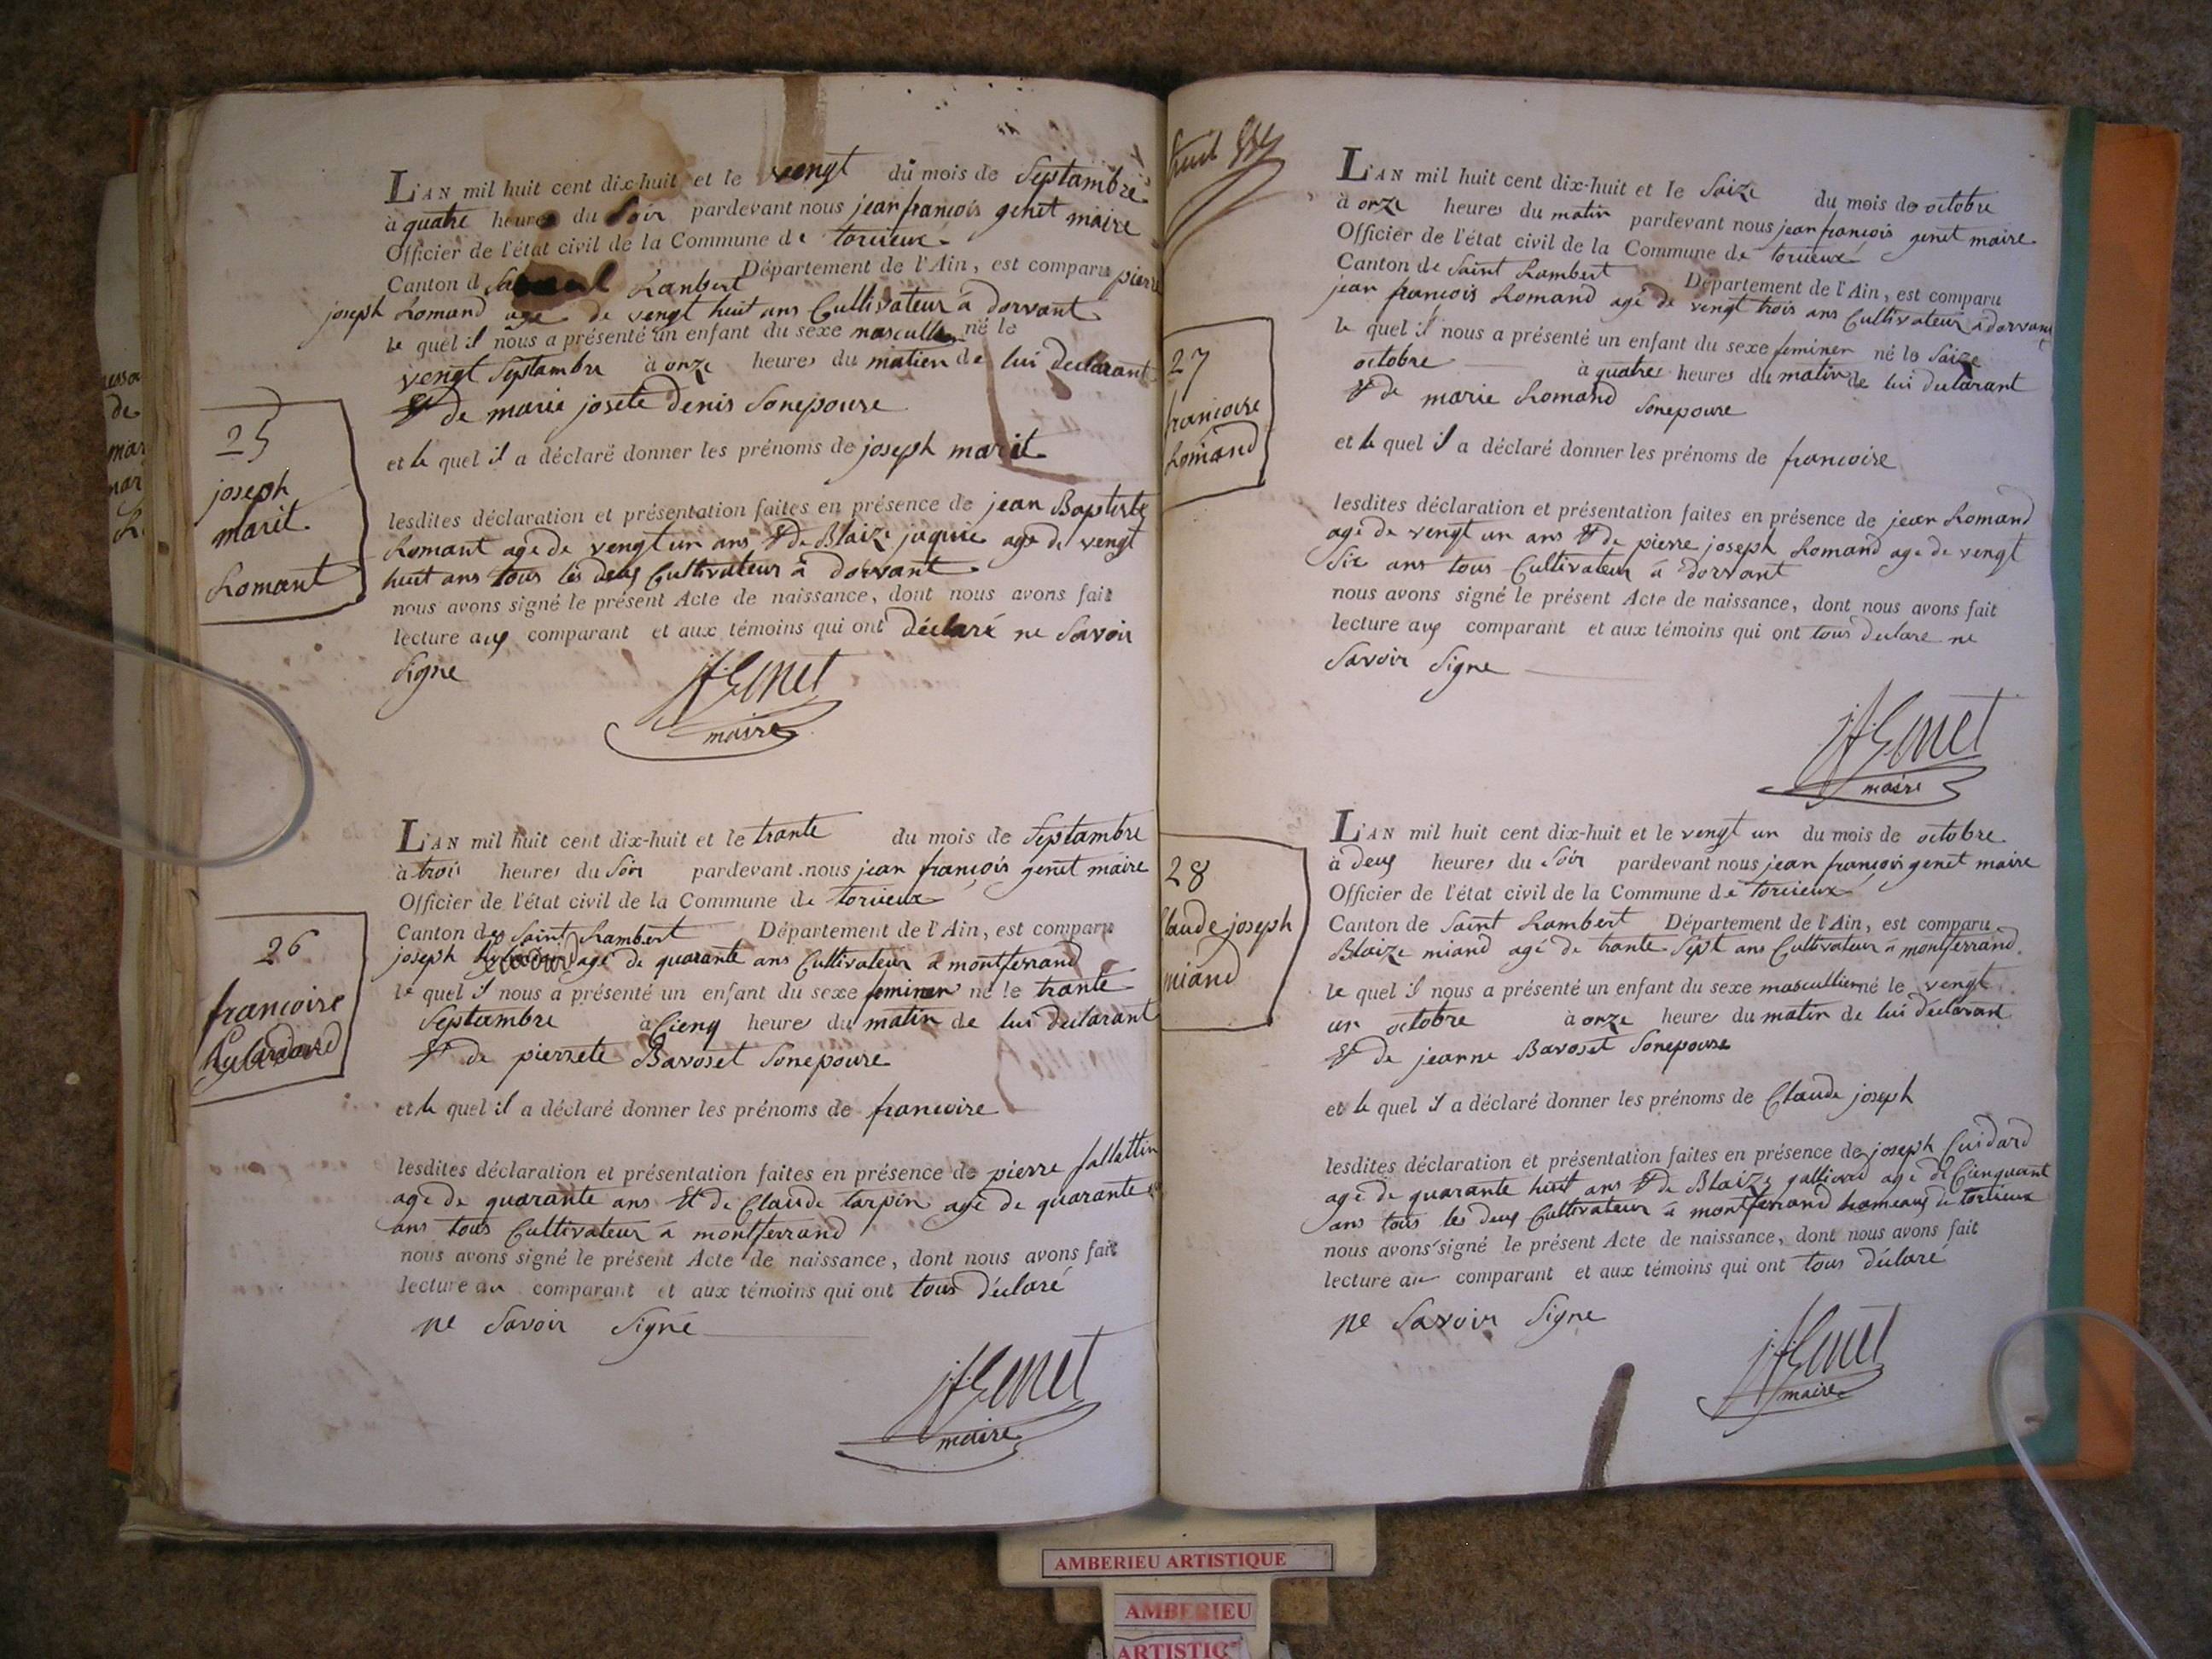 25
joseph
marit
Romant
L'AN mil huit cent dix-huit et le vengt du mois de Septambre
à quatre heures du Soir pardevant nous jean françois genet maire
Officier de l'état civil de la Commune de torcieux
Canton d Lanbert Département de l'Ain, est comparu pierre
joseph Romand age de vengt huit ans Cultivateur a dorvant
le quel il nous a présenté un enfant du sexe né le
vengt Septambre à onze heures du matien de lui declarant
Et de marie josete denis Sonepouse
et le quel il a déclaré donner les prénoms de joseph marit
lesdites déclaration et présentation faites en présence de jean Baptiste
Romant age de vengt un ans Et de Blaize age de vengt
huit ans tous les deux Cultivateur a dorvant
nous avons signé le présent Acte de naissance, dont nous avons fait
lecture aux comparant et aux témoins qui ont déclaré ne Savoir
Signe
jf Genet
maire
26
francoise
L'AN mil huit cent dix-huit et le trante du mois de Septambre
à trois heures du Soir pardevant nous jean françois genet maire
Officier de l'état civil de la Commune de torcieux
Canton de Saint Rambert Département de l'Ain, est comparu
joseph agé de quarante ans Cultivateur a montferrand
le quel il nous a présenté un enfant du sexe feminen né le trante
Septambre à Cienq heures du matin de lui declarant
Et de pierrete Bavoset Sonepouse
et le quel il a déclaré donner les prénoms de francoise
lesdites déclaration et présentation faites en présence de pierre fallattin
age de quarante ans Et de Claude tarpin agé de quarante
ans tous Cultivateur a montferrand
nous avons signé le présent Acte de naissance, dont nous avons fait
lecture au comparant et aux témoins qui ont tous déclaré
ne Savoir Signé
jf Genet
maire
27
francoise
Romand
L'AN mil huit cent dix-huit et le Saize du mois de octobre
à onze heures du matin pardevant nous jean françois genet maire
Officier de l'état civil de la Commune de torcieux
Canton de Saint Rambert Département de l'Ain, est comparu
jean françois Romand agé de vengt trois ans Cultivateur a dorvant
le quel il nous a présenté un enfant du sexe feminen né le Saize
octobre à quatre heures du matin de lui declarant
Et de marie Romand Sonepouse
et le quel il a déclaré donner les prénoms de francoise
lesdites déclaration et présentation faites en présence de jean Romand
age de vengt un ans Et de pierre joseph Romand age de vengt
Six ans tous Cultivateur a dorvant
nous avons signé le présent Acte de naissance, dont nous avons fait
lecture aux comparant et aux témoins qui ont tous declare ne
Savoir Signe
jf Genet
maire
28
Claude joseph
miand
L'AN mil huit cent dix-huit et le vengt un du mois de octobre
à deux heures du Soir pardevant nous jean françois genet maire
Officier de l'état civil de la Commune de torcieux
Canton de Saint Rambert Département de l'Ain, est comparu
Blaize miand agé de trante Sept ans Cultivateur a montferrand
le quel il nous a présenté un enfant du sexe mascullien né le vengt
un octobre à onze heures du matin de lui declarant
Et de jeanne Bavoset Sonepouse
et le quel il a déclaré donner les prénoms de Claude joseph
lesdites déclaration et présentation faites en présence de joseph Cuidard
age de quarante huit ans Et de Blaize gallierd agé de Cienquant
ans tous les deux Cultivateur a montferrand hameaux de torcieux
nous avons signé le présent Acte de naissance, dont nous avons fait
lecture au comparant et aux témoins qui ont tous déclaré
ne Savoir Signe
jf Genet
maire
AMBERIEU ARTISTIQUE
AMBERIEU
ARTISTIQ